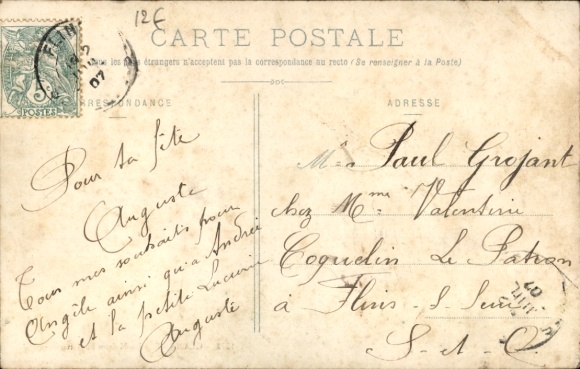 12E
CARTE POSTALE
Tous les pays étrangers n'acceptent pas la correspondance au recto (Se renseigner à la Poste)
CORRESPONDANCE
ADRESSE
5
POSTES
FLINS
07
Pour ta fête
Auguste
Tous mes souhaits pour
Angèle ainsi qu'a André
et la petite Lucienne
Auguste
Paul Grojant
chez Mme Valentine
Coquelin Le Patron
à Flins-s-Seine
S-et-O.
JUIL
07